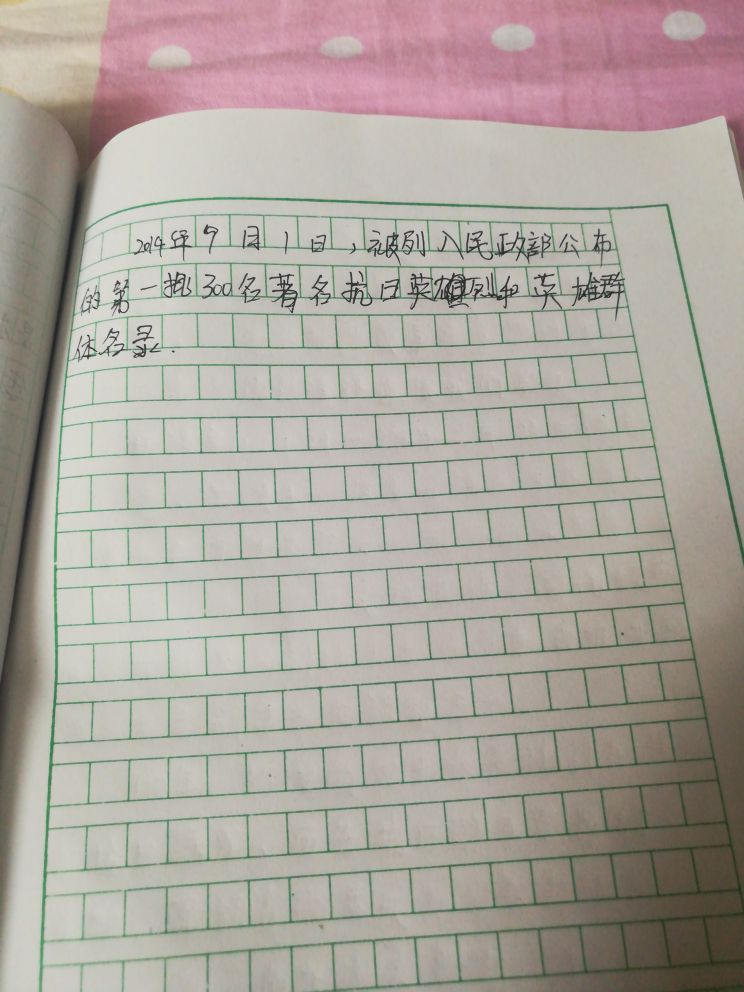 2014年9月1日,被列入民政部公布
的第一批300名著名抗日英雄烈和英雄群
体名录.